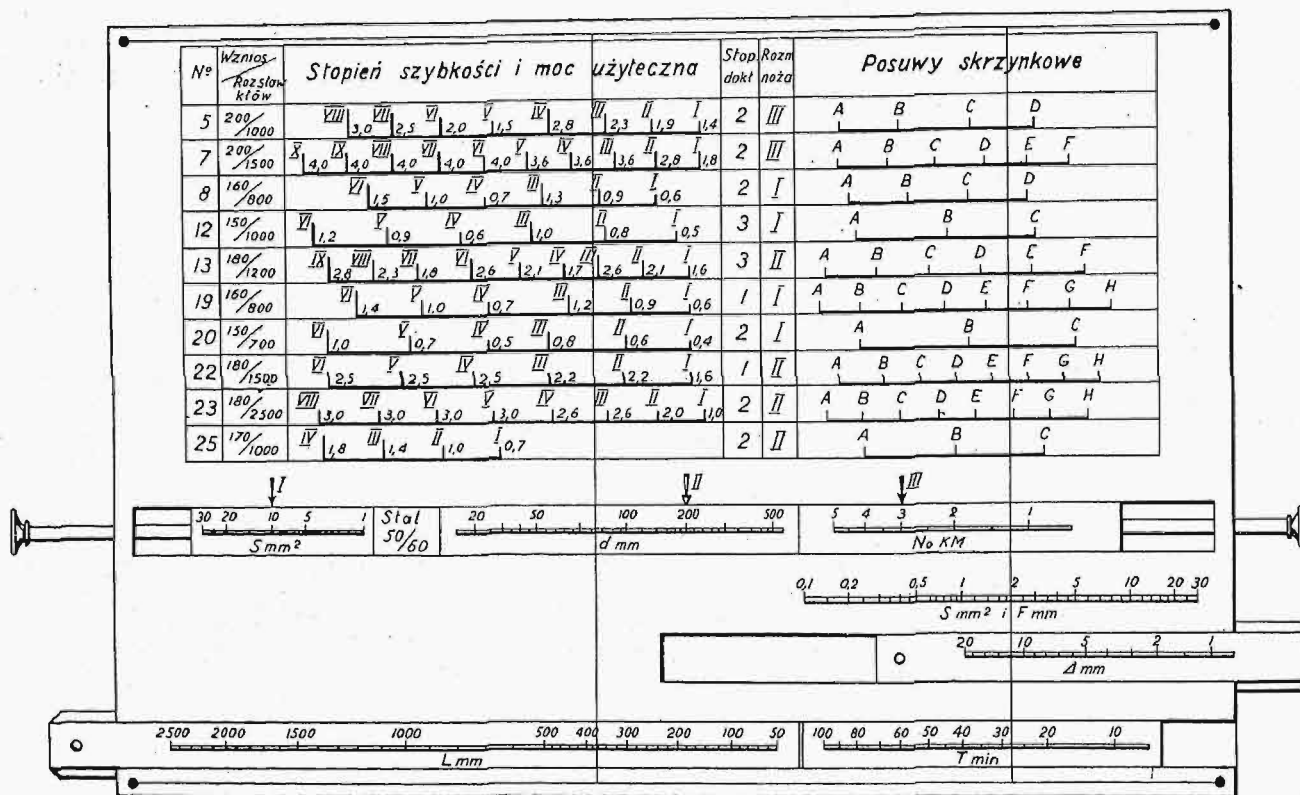 Nº Wznios/Rozstaw kłów Stopień szybkości i moc użyteczna Stop. dokł Rozm noża Posuwy skrzynkowe
5 200/1000 VIII 3,0 VII 2,5 VI 2,0 V 1,5 IV 2,8 III 2,3 II 1,9 I 1,4 2 III A B C D
7 200/1500 X 4,0 IX 4,0 VIII 4,0 VII 4,0 VI 4,0 V 3,6 IV 3,6 III 3,6 II 2,8 I 1,8 2 III A B C D E F
8 160/800 VI 1,5 V 1,0 IV 0,7 III 1,3 II 0,9 I 0,6 2 I A B C D
12 150/1000 VI 1,2 V 0,9 IV 0,6 III 1,0 II 0,8 I 0,5 3 I A B C
13 180/1200 IX 2,8 VIII 2,3 VII 1,8 VI 2,6 V 2,1 IV 1,7 III 2,6 II 2,1 I 1,6 3 II A B C D E F
19 160/800 VI 1,4 V 1,0 IV 0,7 III 1,2 II 0,9 I 0,6 1 I A B C D E F G H
20 150/700 VI 1,0 V 0,7 IV 0,5 III 0,8 II 0,6 I 0,4 2 I A B C
22 180/1500 VI 2,5 V 2,5 IV 2,5 III 2,2 II 2,2 I 1,6 1 II A B C D E F G H
23 180/2500 VIII 3,0 VII 3,0 VI 3,0 V 3,0 IV 2,6 III 2,6 II 2,0 I 1,0 2 II A B C D E F G H
25 170/1000 IV 1,8 III 1,4 II 1,0 I 0,7 2 II A B C
I II III
30 20 10 5 1
S mm²
Stal 50/60
20 50 100 200 500
d mm
5 4 3 2 1
No KM
0,1 0,2 0,5 1 2 5 10 20 30
S mm² i F mm
20 10 5 2 1
Δ mm
2500 2000 1500 1000 500 400 300 200 100 50
L mm
100 80 60 50 40 30 20 10
T min